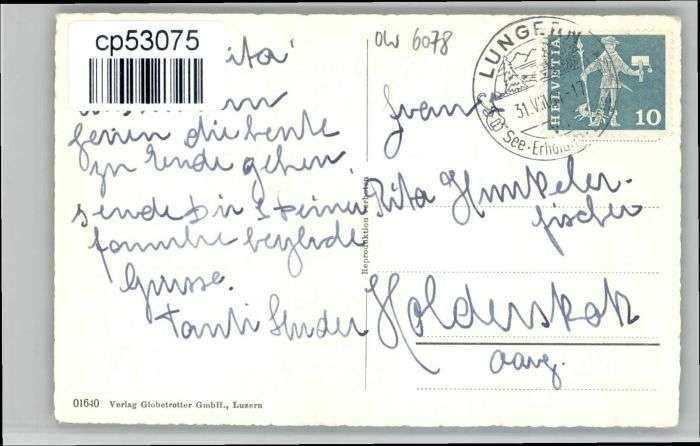 cp53075
OW 6078
ita'
ferien die heute
zu Ende gehen
sende Dir & Deiner
familie herzliche
Grüsse.
Tanti Studer
LUNGERN
31.VII
See - Erhol
HELVETIA
10
Frau
Rita Hunkeler-
fischer
Holderstok
aarg.
Reproduktion verboten
01640 Verlag Globetrotter GmbH., Luzern